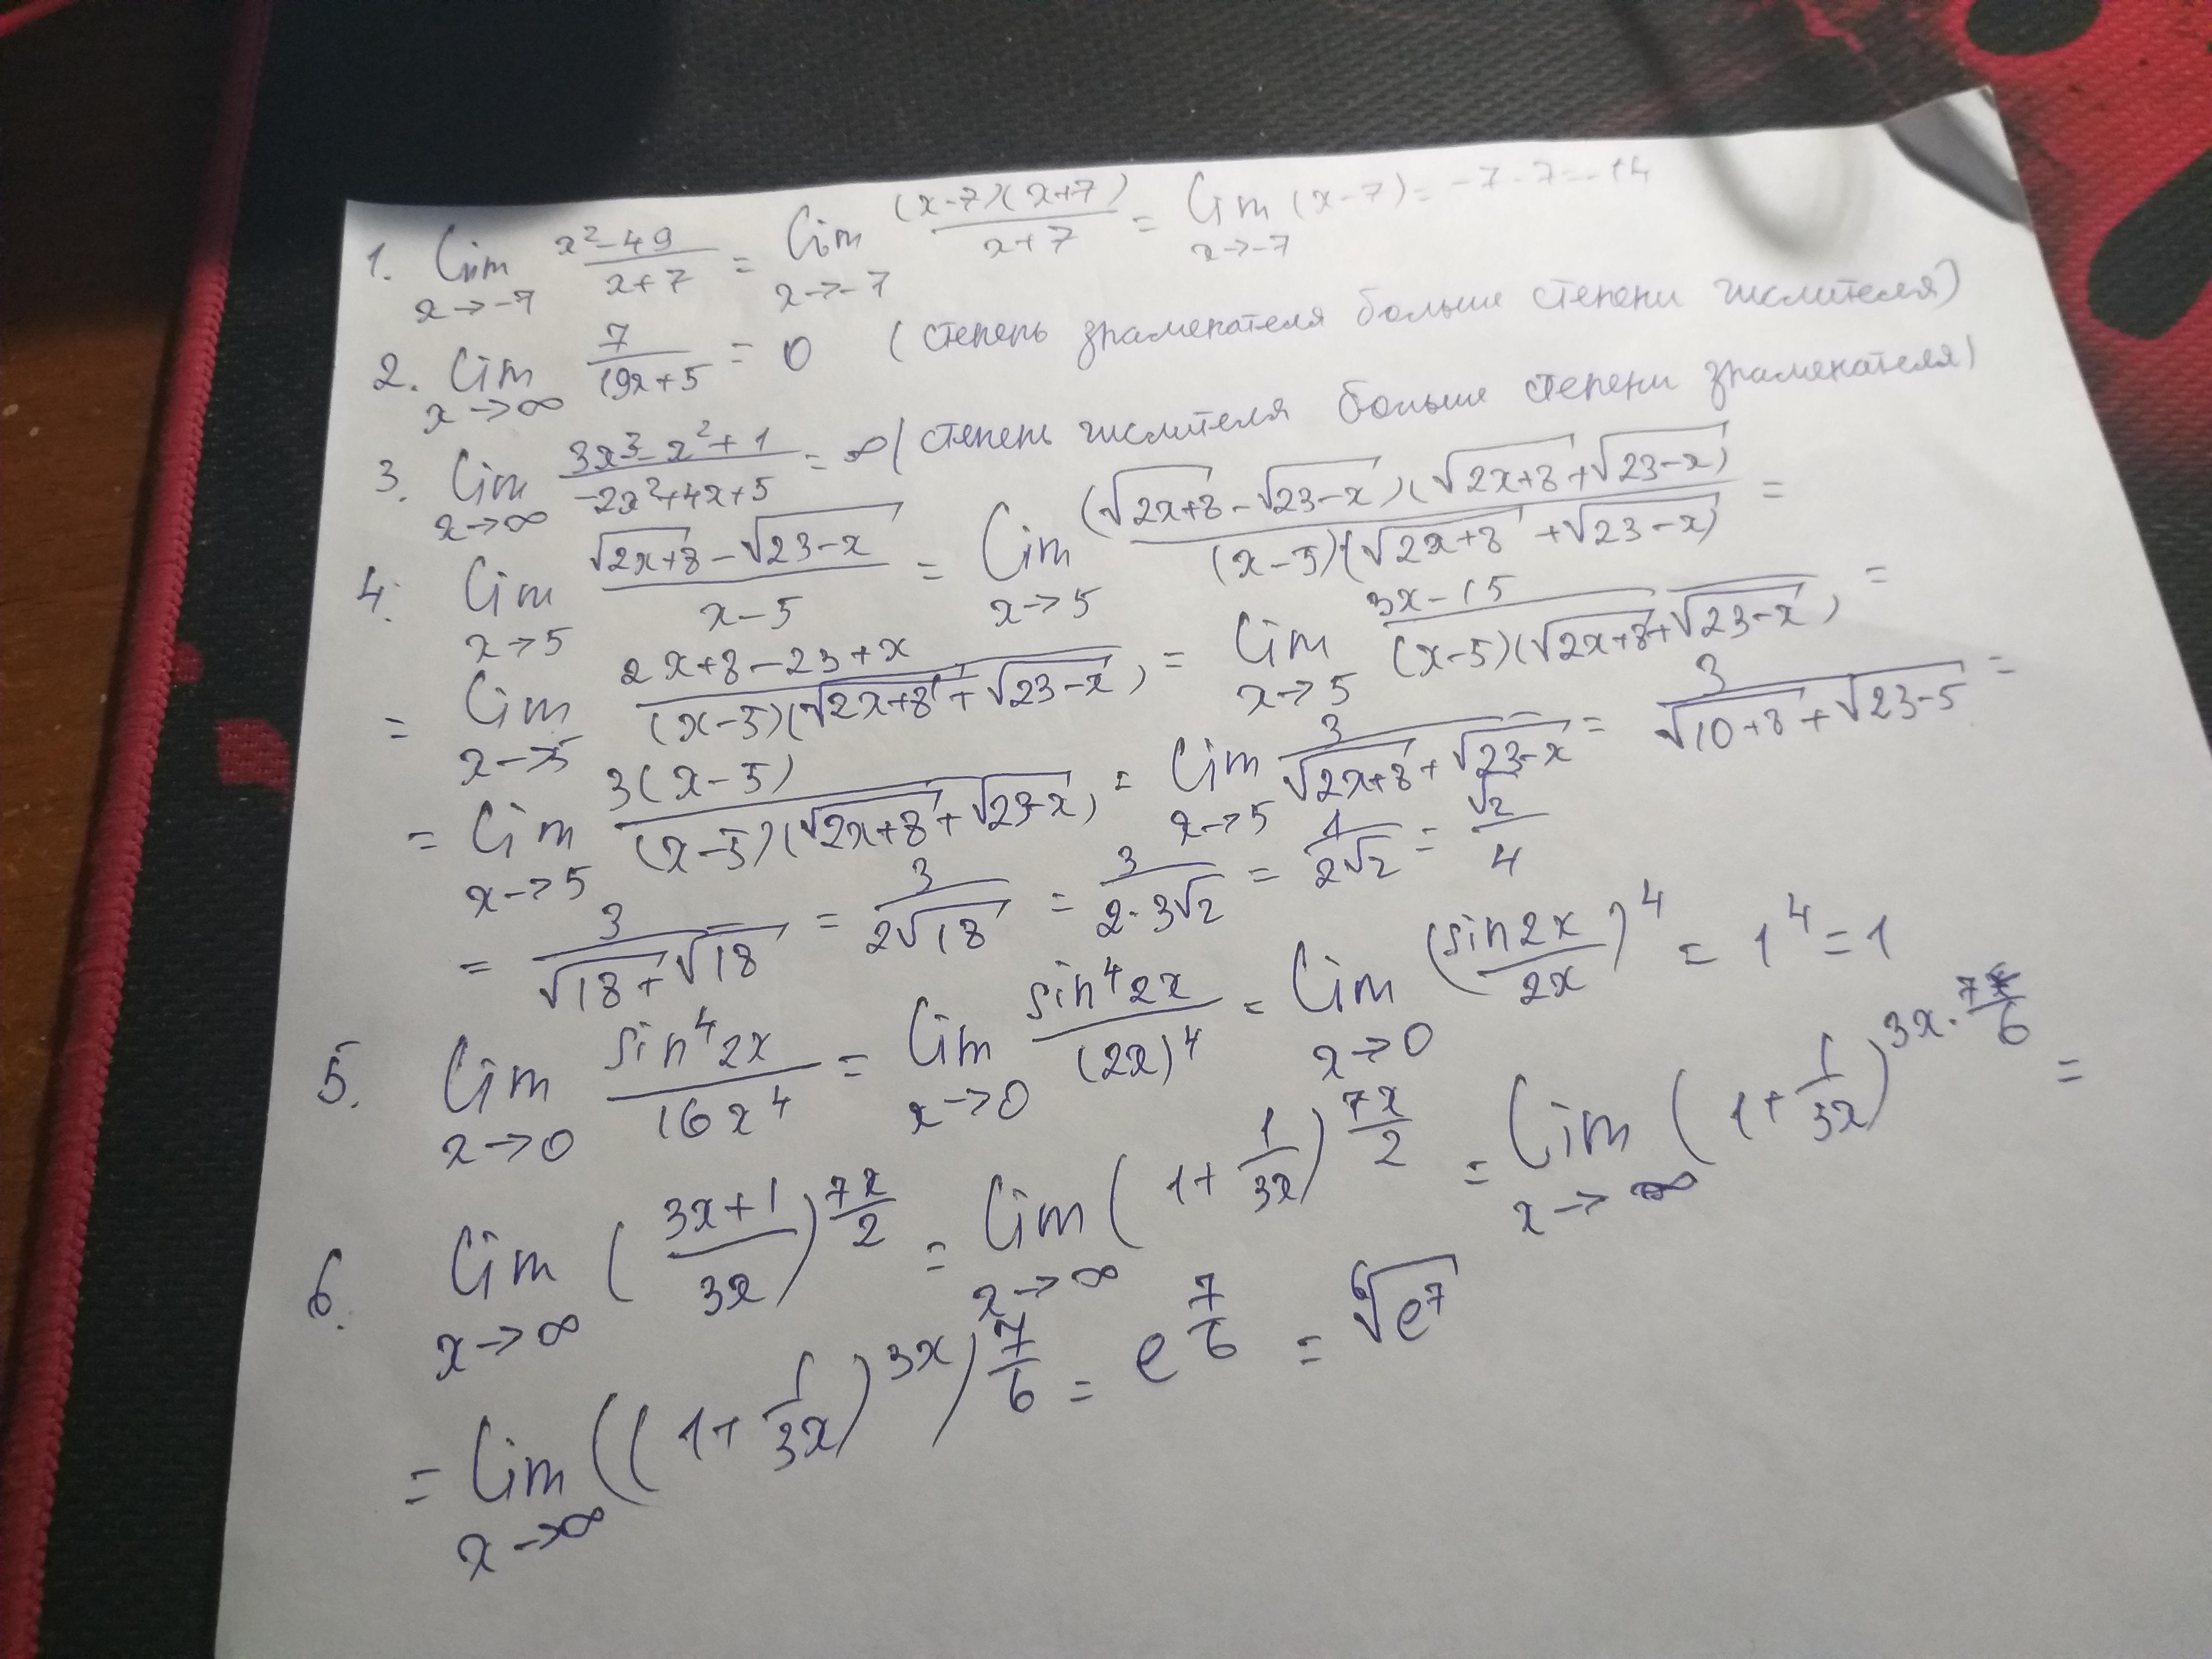 1. lim x→-7 (x²-49)/(x+7) = lim x→-7 ((x-7)(x+7))/(x+7) = lim x→-7 (x-7) = -7-7=-14
2. lim x→∞ 7/(19x+5) = 0 (степень знаменателя больше степени числителя)
3. lim x→∞ (3x³-x²+1)/(-2x²+4x+5) = ∞ (степень числителя больше степени знаменателя)
4. lim x→5 (√(2x+8)-√(23-x))/(x-5) = lim x→5 ((√(2x+8)-√(23-x))(√(2x+8)+√(23-x)))/((x-5)(√(2x+8)+√(23-x))) =
= lim x→5 (2x+8-23+x)/((x-5)(√(2x+8)+√(23-x))) = lim x→5 (3x-15)/((x-5)(√(2x+8)+√(23-x))) =
= lim x→5 (3(x-5))/((x-5)(√(2x+8)+√(23-x))) = lim x→5 3/(√(2x+8)+√(23-x)) = 3/(√(10+8)+√(23-5)) =
= 3/(√18+√18) = 3/(2√18) = 3/(2·3√2) = 1/(2√2) = √2/4
5. lim x→0 (sin⁴2x)/(16x⁴) = lim x→0 (sin⁴2x)/((2x)⁴) = lim x→0 ((sin2x)/(2x))⁴ = 1⁴=1
6. lim x→∞ ((3x+1)/(3x))^(7x/2) = lim x→∞ (1+1/(3x))^(7x/2) = lim x→∞ (1+1/(3x))^(3x·7/6) =
= lim x→∞ ((1+1/(3x))^(3x))^(7/6) = e^(7/6) = ⁶√(e⁷)